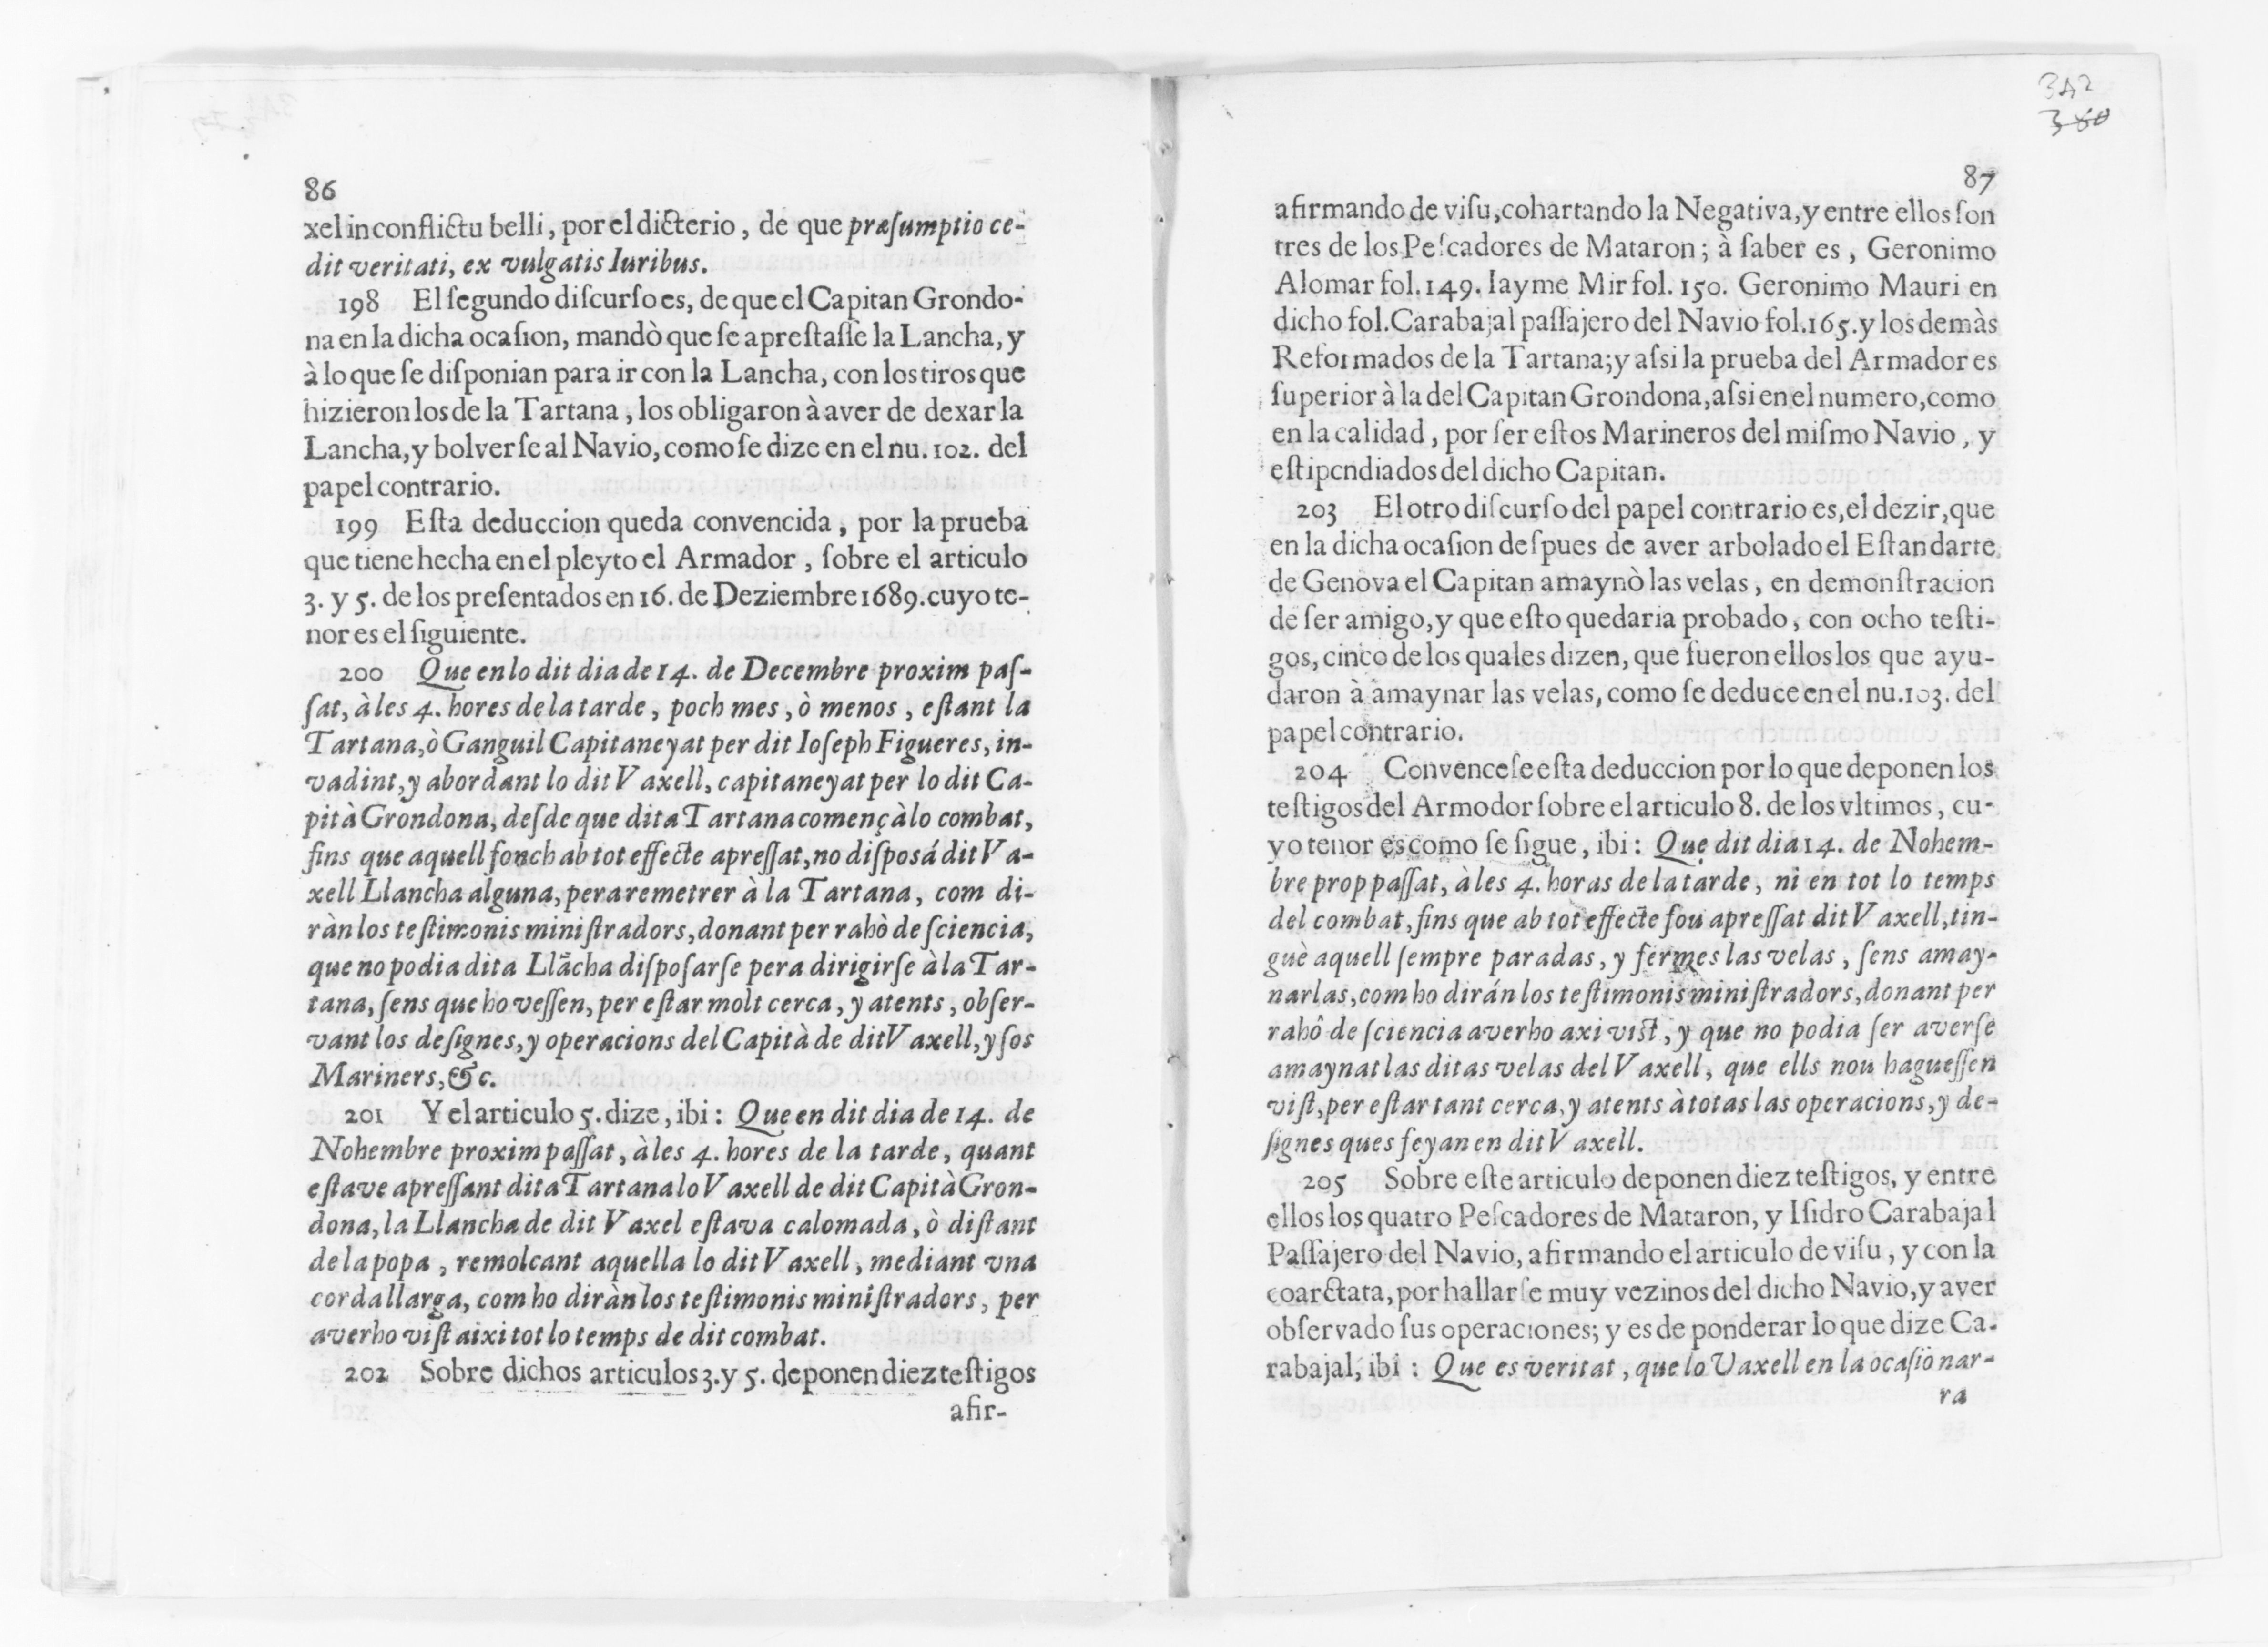 86
xel in conflictu belli, por el dicterio, de que præſumptio ce-
dit veritati, ex vulgatis Iuribus.
198 El ſegundo diſcurſo es, de que el Capitan Grondo-
na en la dicha ocaſion, mandò que ſe apreſtaſſe la Lancha, y
à lo que ſe diſponian para ir con la Lancha, con los tiros que
hizieron los de la Tartana, los obligaron à aver de dexar la
Lancha, y bolverſe al Navio, como ſe dize en el nu. 102. del
papel contrario.
199 Eſta deduccion queda convencida, por la prueba
que tiene hecha en el pleyto el Armador, ſobre el articulo
3. y 5. de los preſentados en 16. de Deziembre 1689. cuyo te-
nor es el ſiguiente.
200 Que en lo dit dia de 14. de Decembre proxim paſ-
ſat, à les 4. hores de la tarde, poch mes, ò menos, eſtant la
Tartana, ò Ganguil Capitaneyat per dit Ioſeph Figueres, in-
vadint, y abordant lo dit Vaxell, capitaneyat per lo dit Ca-
pità Grondona, deſde que dita Tartana començà lo combat,
fins que aquell fonch ab tot effecte apreſſat, no diſposá dit Va-
xell Llancha alguna, pera remetrer à la Tartana, com di-
ràn los teſtimonis miniſtradors, donant per rahò de ſciencia,
que no podia dita Llãcha diſpoſarſe pera dirigirſe à la Tar-
tana, ſens que ho veſſen, per eſtar molt cerca, y atents, obſer-
vant los deſignes, y operacions del Capità de dit Vaxell, y ſos
Mariners, &c.
201 Y el articulo 5. dize, ibi: Que en dit dia de 14. de
Nohembre proxim paſſat, à les 4. hores de la tarde, quant
eſtave apreſſant dita Tartana lo Vaxell de dit Capità Gron-
dona, la Llancha de dit Vaxel eſtava calomada, ò diſtant
de la popa, remolcant aquella lo dit Vaxell, mediant vna
corda llarga, com ho diràn los teſtimonis miniſtradors, per
averho viſt aixi tot lo temps de dit combat.
202 Sobre dichos articulos 3. y 5. deponen diez teſtigos
afir-
342
380
87
afirmando de viſu, cohartando la Negativa, y entre ellos ſon
tres de los Peſcadores de Mataron; à ſaber es, Geronimo
Alomar fol. 149. Iayme Mir fol. 150. Geronimo Mauri en
dicho fol. Carabajal paſſajero del Navio fol. 165. y los demàs
Reformados de la Tartana; y aſsi la prueba del Armador es
ſuperior à la del Capitan Grondona, aſsi en el numero, como
en la calidad, por ſer eſtos Marineros del miſmo Navio, y
eſtipendiados del dicho Capitan.
203 El otro diſcurſo del papel contrario es, el dezir, que
en la dicha ocaſion deſpues de aver arbolado el Eſtandarte
de Genova el Capitan amaynò las velas, en demonſtracion
de ſer amigo, y que eſto quedaria probado, con ocho teſti-
gos, cinco de los quales dizen, que fueron ellos los que ayu-
daron à amaynar las velas, como ſe deduce en el nu. 103. del
papel contrario.
204 Convenceſe eſta deduccion por lo que deponen los
teſtigos del Armodor ſobre el articulo 8. de los vltimos, cu-
yo tenor es como ſe ſigue, ibi: Que dit dia 14. de Nohem-
bre prop paſſat, à les 4. horas de la tarde, ni en tot lo temps
del combat, fins que ab tot effecte fou apreſſat dit Vaxell, tin-
guè aquell ſempre paradas, y fermes las velas, ſens amay-
narlas, com ho dirán los teſtimonis miniſtradors, donant per
rahô de ſciencia averho axi viſt, y que no podia ſer averſe
amaynat las ditas velas del Vaxell, que ells nou hagueſſen
viſt, per eſtar tant cerca, y atents à totas las operacions, y de-
ſignes ques feyan en dit Vaxell.
205 Sobre eſte articulo deponen diez teſtigos, y entre
ellos los quatro Peſcadores de Mataron, y Iſidro Carabajal
Paſſajero del Navio, afirmando el articulo de viſu, y con la
coarctata, por hallarſe muy vezinos del dicho Navio, y aver
obſervado ſus operaciones; y es de ponderar lo que dize Ca-
rabajal, ibi: Que es veritat, que lo Vaxell en la ocaſiô nar-
ra